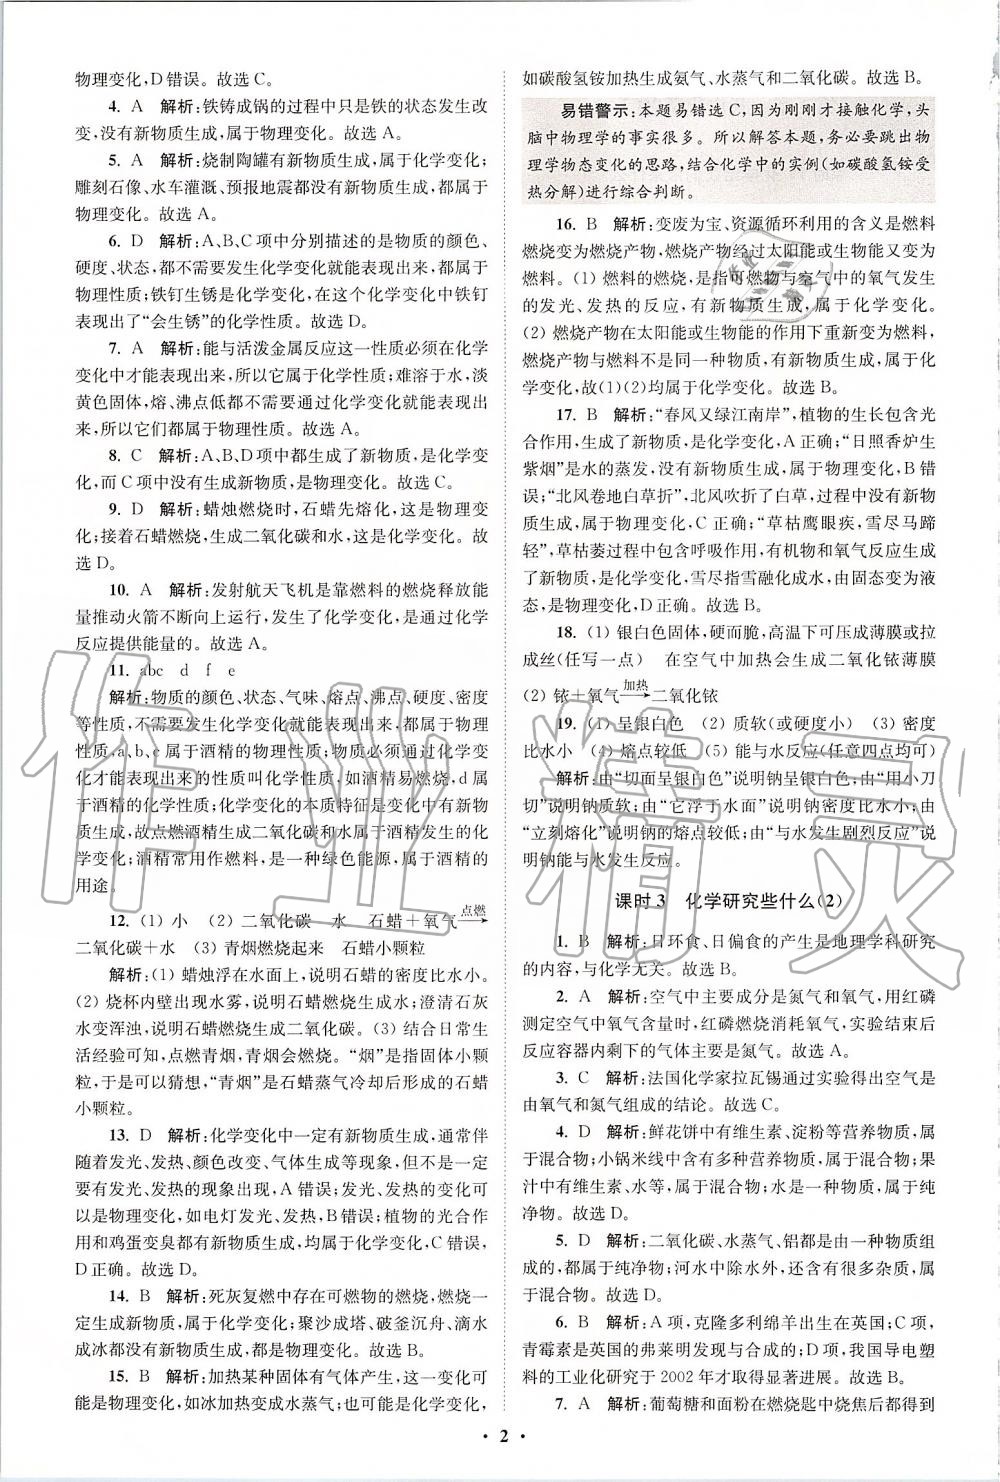 物理变化,D错误。故选C。
4. A 解析:铁铸成锅的过程中只是铁的状态发生改
变,没有新物质生成,属于物理变化。故选A。
5. A 解析:烧制陶罐有新物质生成,属于化学变化;
雕刻石像、水车灌溉、预报地震都没有新物质生成,属于
物理变化。故选A。
6. D 解析:A、B、C项中分别描述的是物质的颜色、
硬度、状态,都不需要发生化学变化就能表现出来,所以
属于物理性质;铁钉生锈是化学变化,在这个化学变化中铁钉
表现出了“会生锈”的化学性质。故选D。
7. A 解析:能与活泼金属反应这一性质必须在化学
变化中才能表现出来,所以它属于化学性质;难溶于水,淡
黄色固体,熔、沸点低都不需要通过化学变化就能表现出
来,所以它们都属于物理性质。故选A。
8. C 解析:A、B、D项中都生成了新物质,是化学变
化,而C项中没有生成新物质,是物理变化。故选C。
9. D 解析:蜡烛燃烧时,石蜡先熔化,这是物理变
化;接着石蜡燃烧,生成二氧化碳和水,这是化学变化。故
选D。
10. A 解析:发射航天飞机是靠燃料的燃烧释放能
量推动火箭不断向上运行,发生了化学变化,是通过化学
反应提供能量的。故选A。
11. abc d f e
解析:物质的颜色、状态、气味、熔点、沸点、硬度、密度
等性质,不需要发生化学变化就能表现出来,都属于物理
性质,a、b、c属于酒精的物理性质;物质必须通过化学变
化才能表现出来的性质叫化学性质,如酒精易燃烧,d属
于酒精的化学性质;化学变化的本质特征是变化中有新物
质生成,故点燃酒精生成二氧化碳和水属于酒精发生的化
学变化;酒精常用作燃料,是一种绿色能源,属于酒精的
用途。
12. (1) 小 (2) 二氧化碳 水 石蜡+氧气 点燃→
二氧化碳+水 (3) 青烟燃烧起来 石蜡小颗粒
解析:(1) 蜡烛浮在水面上,说明石蜡的密度比水小。
(2) 烧杯内壁出现水雾,说明石蜡燃烧生成水;澄清石灰
水变浑浊,说明石蜡燃烧生成二氧化碳。(3) 结合日常生
活经验可知,点燃青烟,青烟会燃烧。“烟”是指固体小颗
粒,于是可以猜想,“青烟”是石蜡蒸气冷却后形成的石蜡
小颗粒。
13. D 解析:化学变化中一定有新物质生成,通常伴
随着发光、发热、颜色改变、气体生成等现象,但不是一定
要有发光、发热的现象出现,A错误;发光、发热的变化可
以是物理变化,如电灯发光、发热,B错误;植物的光合作
用和鸡蛋变臭都有新物质生成,都属于化学变化,C错误,
D正确。故选D。
14. B 解析:死灰复燃中存在可燃物的燃烧,燃烧一
定生成新物质,属于化学变化;聚沙成塔、破釜沉舟、滴水
成冰都没有新物质生成,都是物理变化。故选B。
15. B 解析:加热某种固体有气体产生,这一变化可
能是物理变化,如冰加热变成水蒸气;也可能是化学变化,
如碳酸氢铵加热生成氨气、水蒸气和二氧化碳。故选B。
易错警示:本题易错选C,因为刚刚才接触化学,头
脑中物理学的事实很多。所以解答本题,务必要跳出物
理学物态变化的思路,结合化学中的实例(如碳酸氢铵受
热分解)进行综合判断。
16. B 解析:变废为宝、资源循环利用的含义是燃料
燃烧变为燃烧产物,燃烧产物经过太阳能或生物能又变为
燃料。(1) 燃料的燃烧,是指可燃物与空气中的氧气发生
的发光、发热的反应,有新物质生成,属于化学变化。
(2) 燃烧产物在太阳能或生物能的作用下重新变为燃料,
燃烧产物与燃料不是同一种物质,有新物质生成,属于化
学变化,故(1)(2)均属于化学变化。故选B。
17. B 解析:“春风又绿江南岸”,植物的生长包含光
合作用,生成了新物质,是化学变化,A正确;“日照香炉生
紫烟”是水的蒸发,没有新物质生成,属于物理变化,B错
误;“北风卷地白草折”,北风吹折了白草,过程中没有新物
质生成,属于物理变化,C正确;“草枯鹰眼疾,雪尽马蹄
轻”,草枯萎过程中包含呼吸作用,有机物和氧气反应生成
了新物质,是化学变化,雪尽指雪融化成水,由固态变为液
态,是物理变化,D正确。故选B。
18. (1) 银白色固体,硬而脆,高温下可压成薄膜或拉
成丝(任写一点) 在空气中加热会生成二氧化铱薄膜
(2) 铱+氧气 加热→ 二氧化铱
19. (1) 呈银白色 (2) 质软(或硬度小) (3) 密度
比水小 (4) 熔点较低 (5) 能与水反应(任意四点均可)
解析:由“切面呈银白色”说明钠呈银白色;由“用小刀
切”说明钠质软;由“它浮于水面”说明钠密度比水小;由
“立刻熔化”说明钠的熔点较低;由“与水发生剧烈反应”说
明钠能与水发生反应。
课时3 化学研究些什么(2)
1. B 解析:日环食、日偏食的产生是地理学科研究
的内容,与化学无关。故选B。
2. A 解析:空气中主要成分是氮气和氧气,用红磷
测定空气中氧气含量时,红磷燃烧消耗氧气,实验结束后
反应容器内剩下的气体主要是氮气。故选A。
3. C 解析:法国化学家拉瓦锡通过实验得出空气是
由氧气和氮气组成的结论。故选C。
4. D 解析:鲜花饼中有维生素、淀粉等营养物质,属
于混合物;小锅米线中含有多种营养物质,属于混合物;果
汁中有维生素、水等,属于混合物;水是一种物质,属于纯
净物。故选D。
5. D 解析:二氧化碳、水蒸气、铝都是由一种物质组
成的,都属于纯净物;河水中除水外,还含有很多杂质,属
于混合物。故选D。
6. B 解析:A项,克隆多利绵羊出生在英国;C项,
青霉素是英国的弗莱明发现与合成的;D项,我国导电塑
料的工业化研究于2002年才取得显著进展。故选B。
7. A 解析:葡萄糖和面粉在燃烧匙中烧焦后都得到
• 2 •
作业精灵